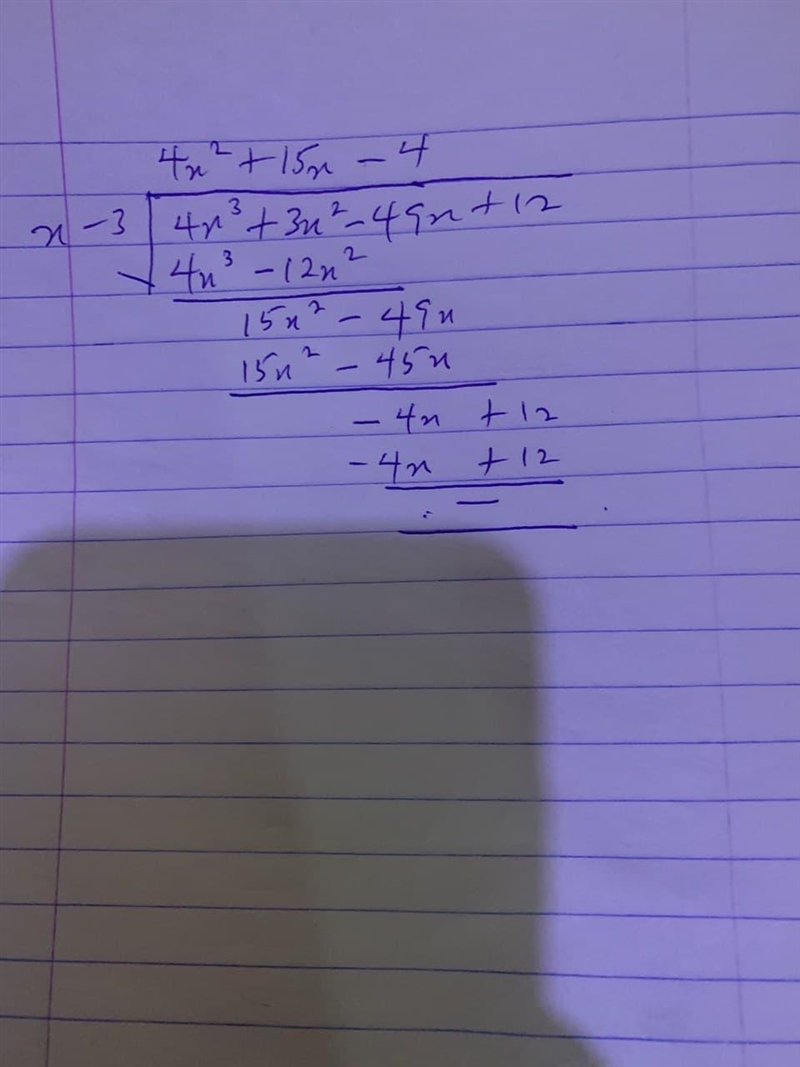 4x² + 15x - 4
x - 3 4x³ + 3x² - 49x + 12
4x³ - 12x²
15x² - 49x
15x² - 45x
- 4x + 12
- 4x + 12
—